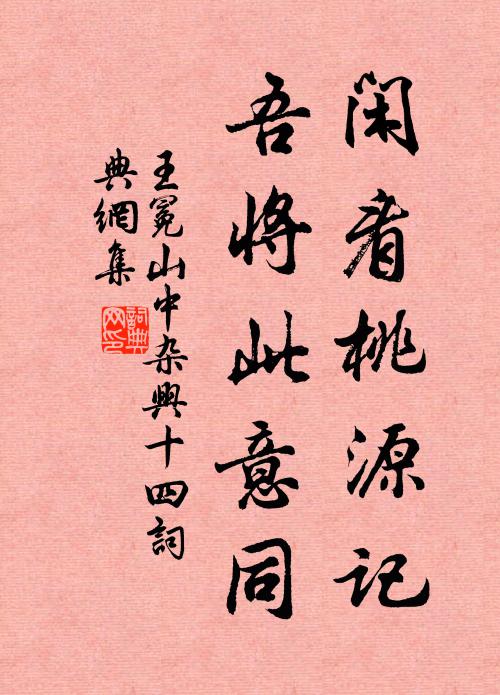 闲看桃源记
吾将此意同
王冕山中杂兴十四詞
典網集
詞典
网印